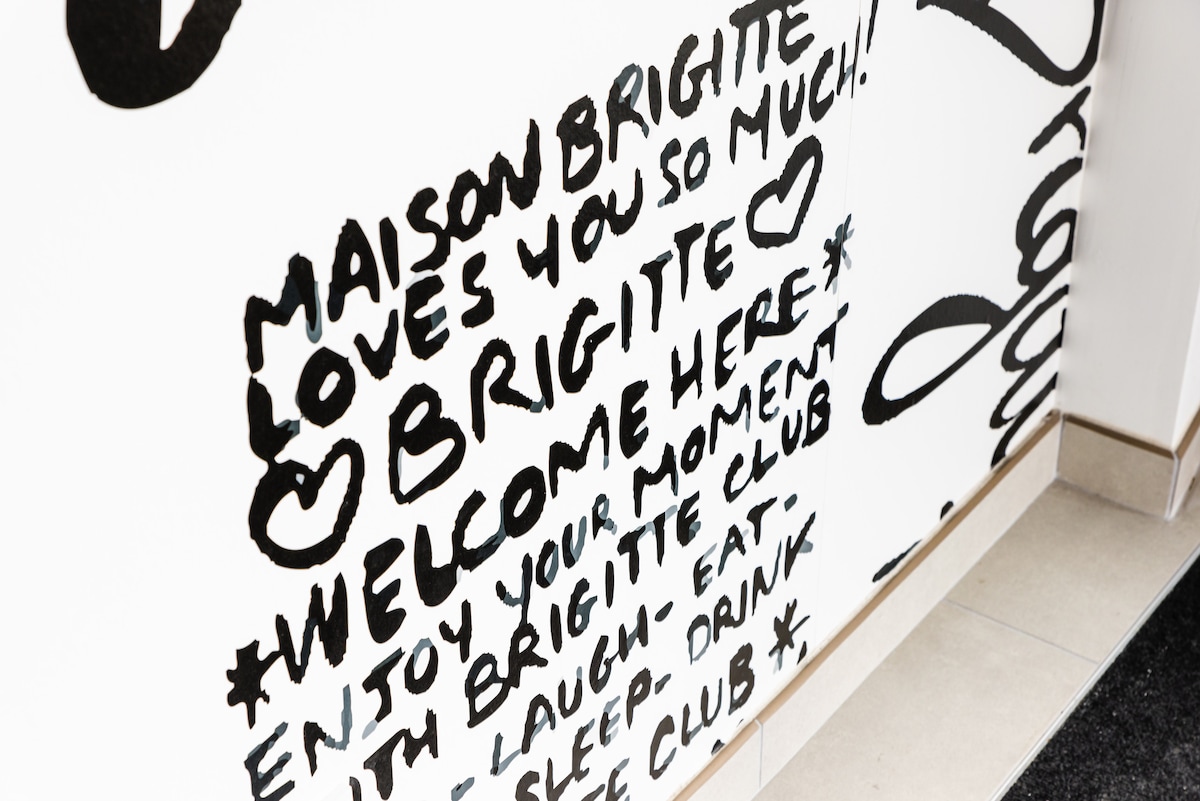 MAISON BRIGITTE
LOVES YOU SO MUCH!
♡ BRIGITTE ♡
*WELCOME HERE*
ENJOY YOUR MOMENT
WITH BRIGITTE CLUB
- LAUGH - EAT -
SLEEP - DRINK
CLUB *